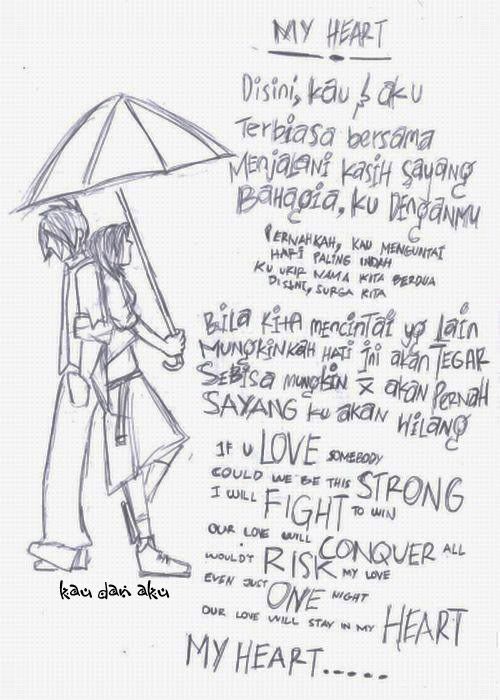 MY HEART
Disini, kau & aku
Terbiasa bersama
Menjalani kasih sayang
Bahagia, ku denganmu
PERNAHKAH, KAU MENGUNTAI
HARI PALING INDAH
KU UKIR NAMA KITA BERDUA
DISINI, SURGA KITA
Bila kita mencintai yg lain
Mungkinkah hati ini akan tegar
Sebisa mungkin x akan pernah
SAYANG ku akan HILANG
IF U LOVE SOMEBODY
COULD WE BE THIS STRONG
I WILL FIGHT TO WIN
OUR LOVE WILL CONQUER ALL
WOULD'T RISK MY LOVE
EVEN JUST ONE NIGHT
OUR LOVE WILL STAY IN MY HEART
MY HEART.....
kau dan aku